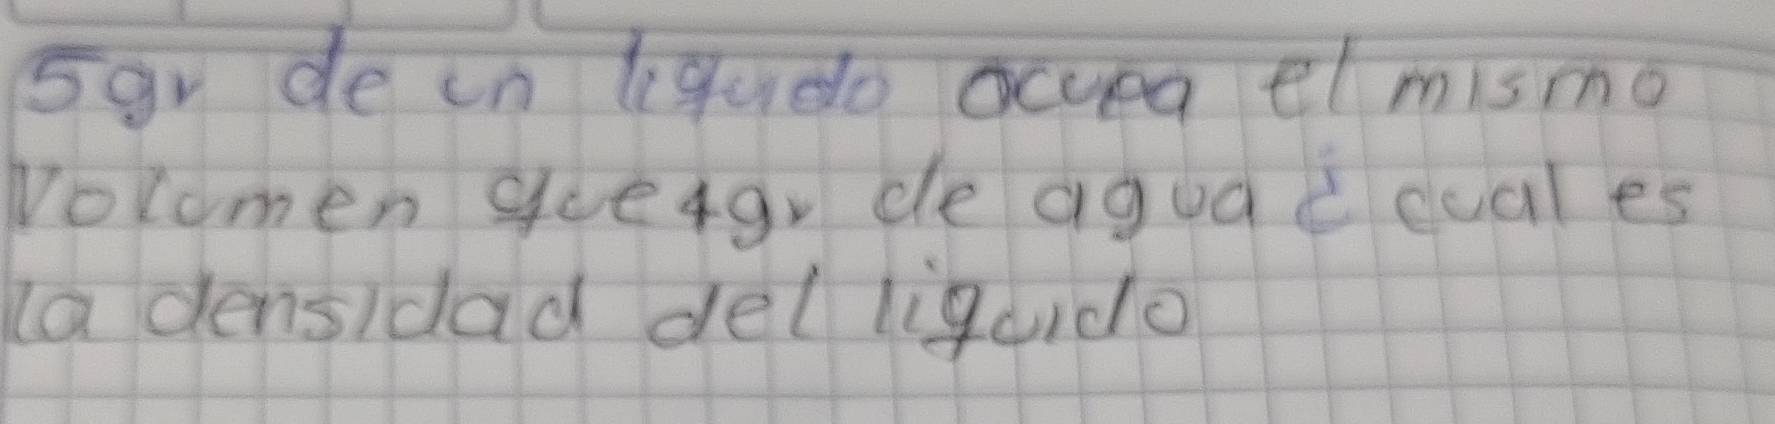 5gr de un liqudo ocupa el mismo
Volumen que 4gr de agua ¿ cual es
la densidad del liquido